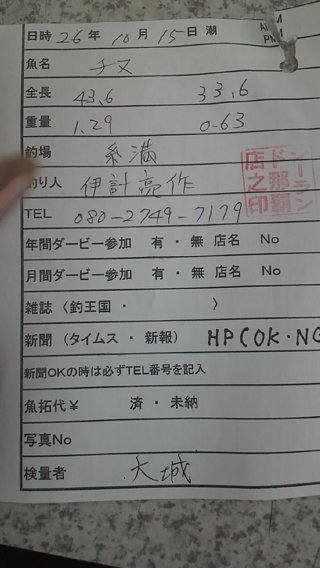 日時 26年 10月 15日 潮
魚名 チヌ
全長 43.6 33.6
重量 1.29 0.63
釣場 糸満
釣り人 伊計亮作
シーランド那覇店之印
TEL 080-2749-7179
年間ダービー参加 有・無 店名 No
月間ダービー参加 有・無 店名 No
雑誌〈釣王国・ 〉
新聞（タイムス・新報） HP(OK・NG
新聞OKの時は必ずTEL番号を記入
魚拓代￥ 済・未納
写真No
検量者 大城